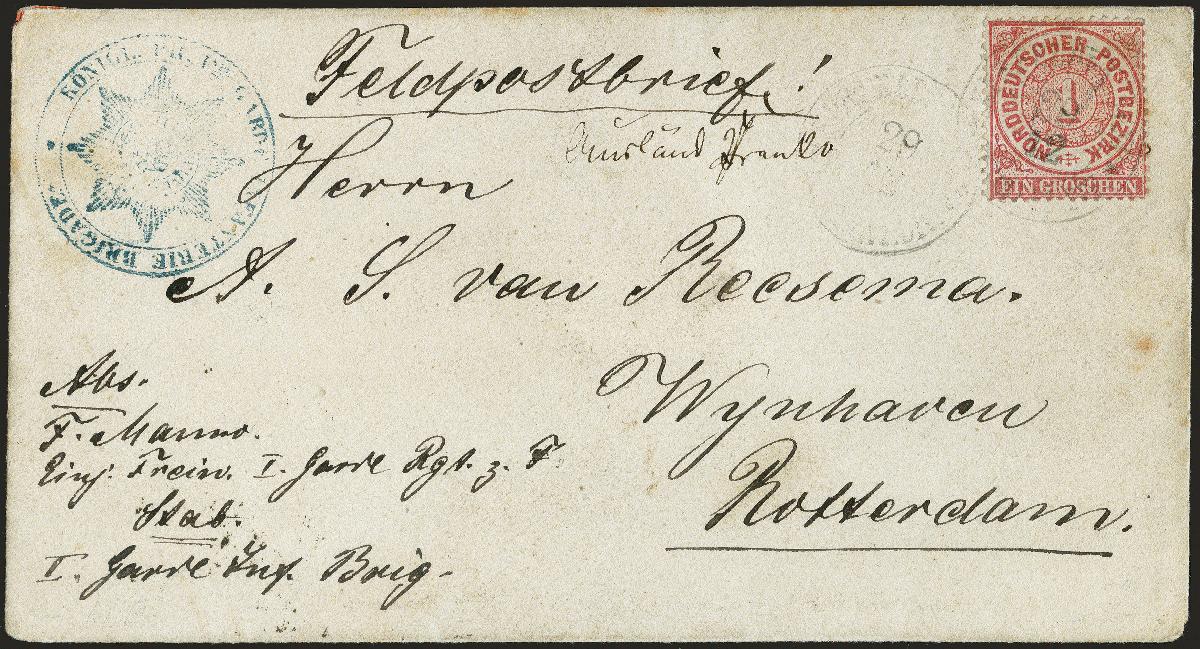 KÖNIGL. PR. GARDE INFANTERIE BRIGADE
Feldpostbrief!
Ausland Franko
NORDDEUTSCHER POSTBEZIRK
1
EIN GROSCHEN
29
Herrn
A. S. van Reesema.
Wynhaven
Rotterdam.
Abs.
F. Manno.
Einj. Freiw. I. Garde Rgt. z. F.
Stab.
I. Garde Inf. Brig.